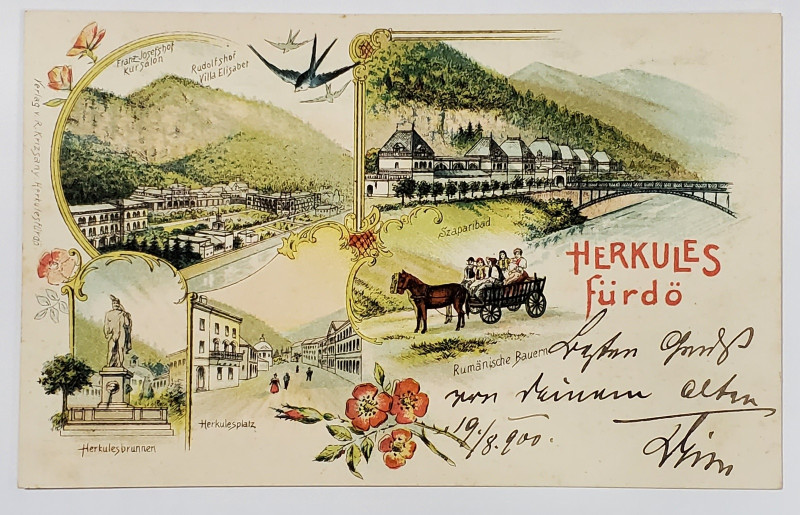 Franz-Josefshof
Kursalon
Rudolfshof
Villa Elisabet
Verlag v. R. Krizsány Herkulesfürdö
Szaparibad
HERKULES
fürdö
Rumänische Bauern
Herkulesbrunnen
Herkulesplatz
Besten Gruß
von deinem alten
19./8.900.